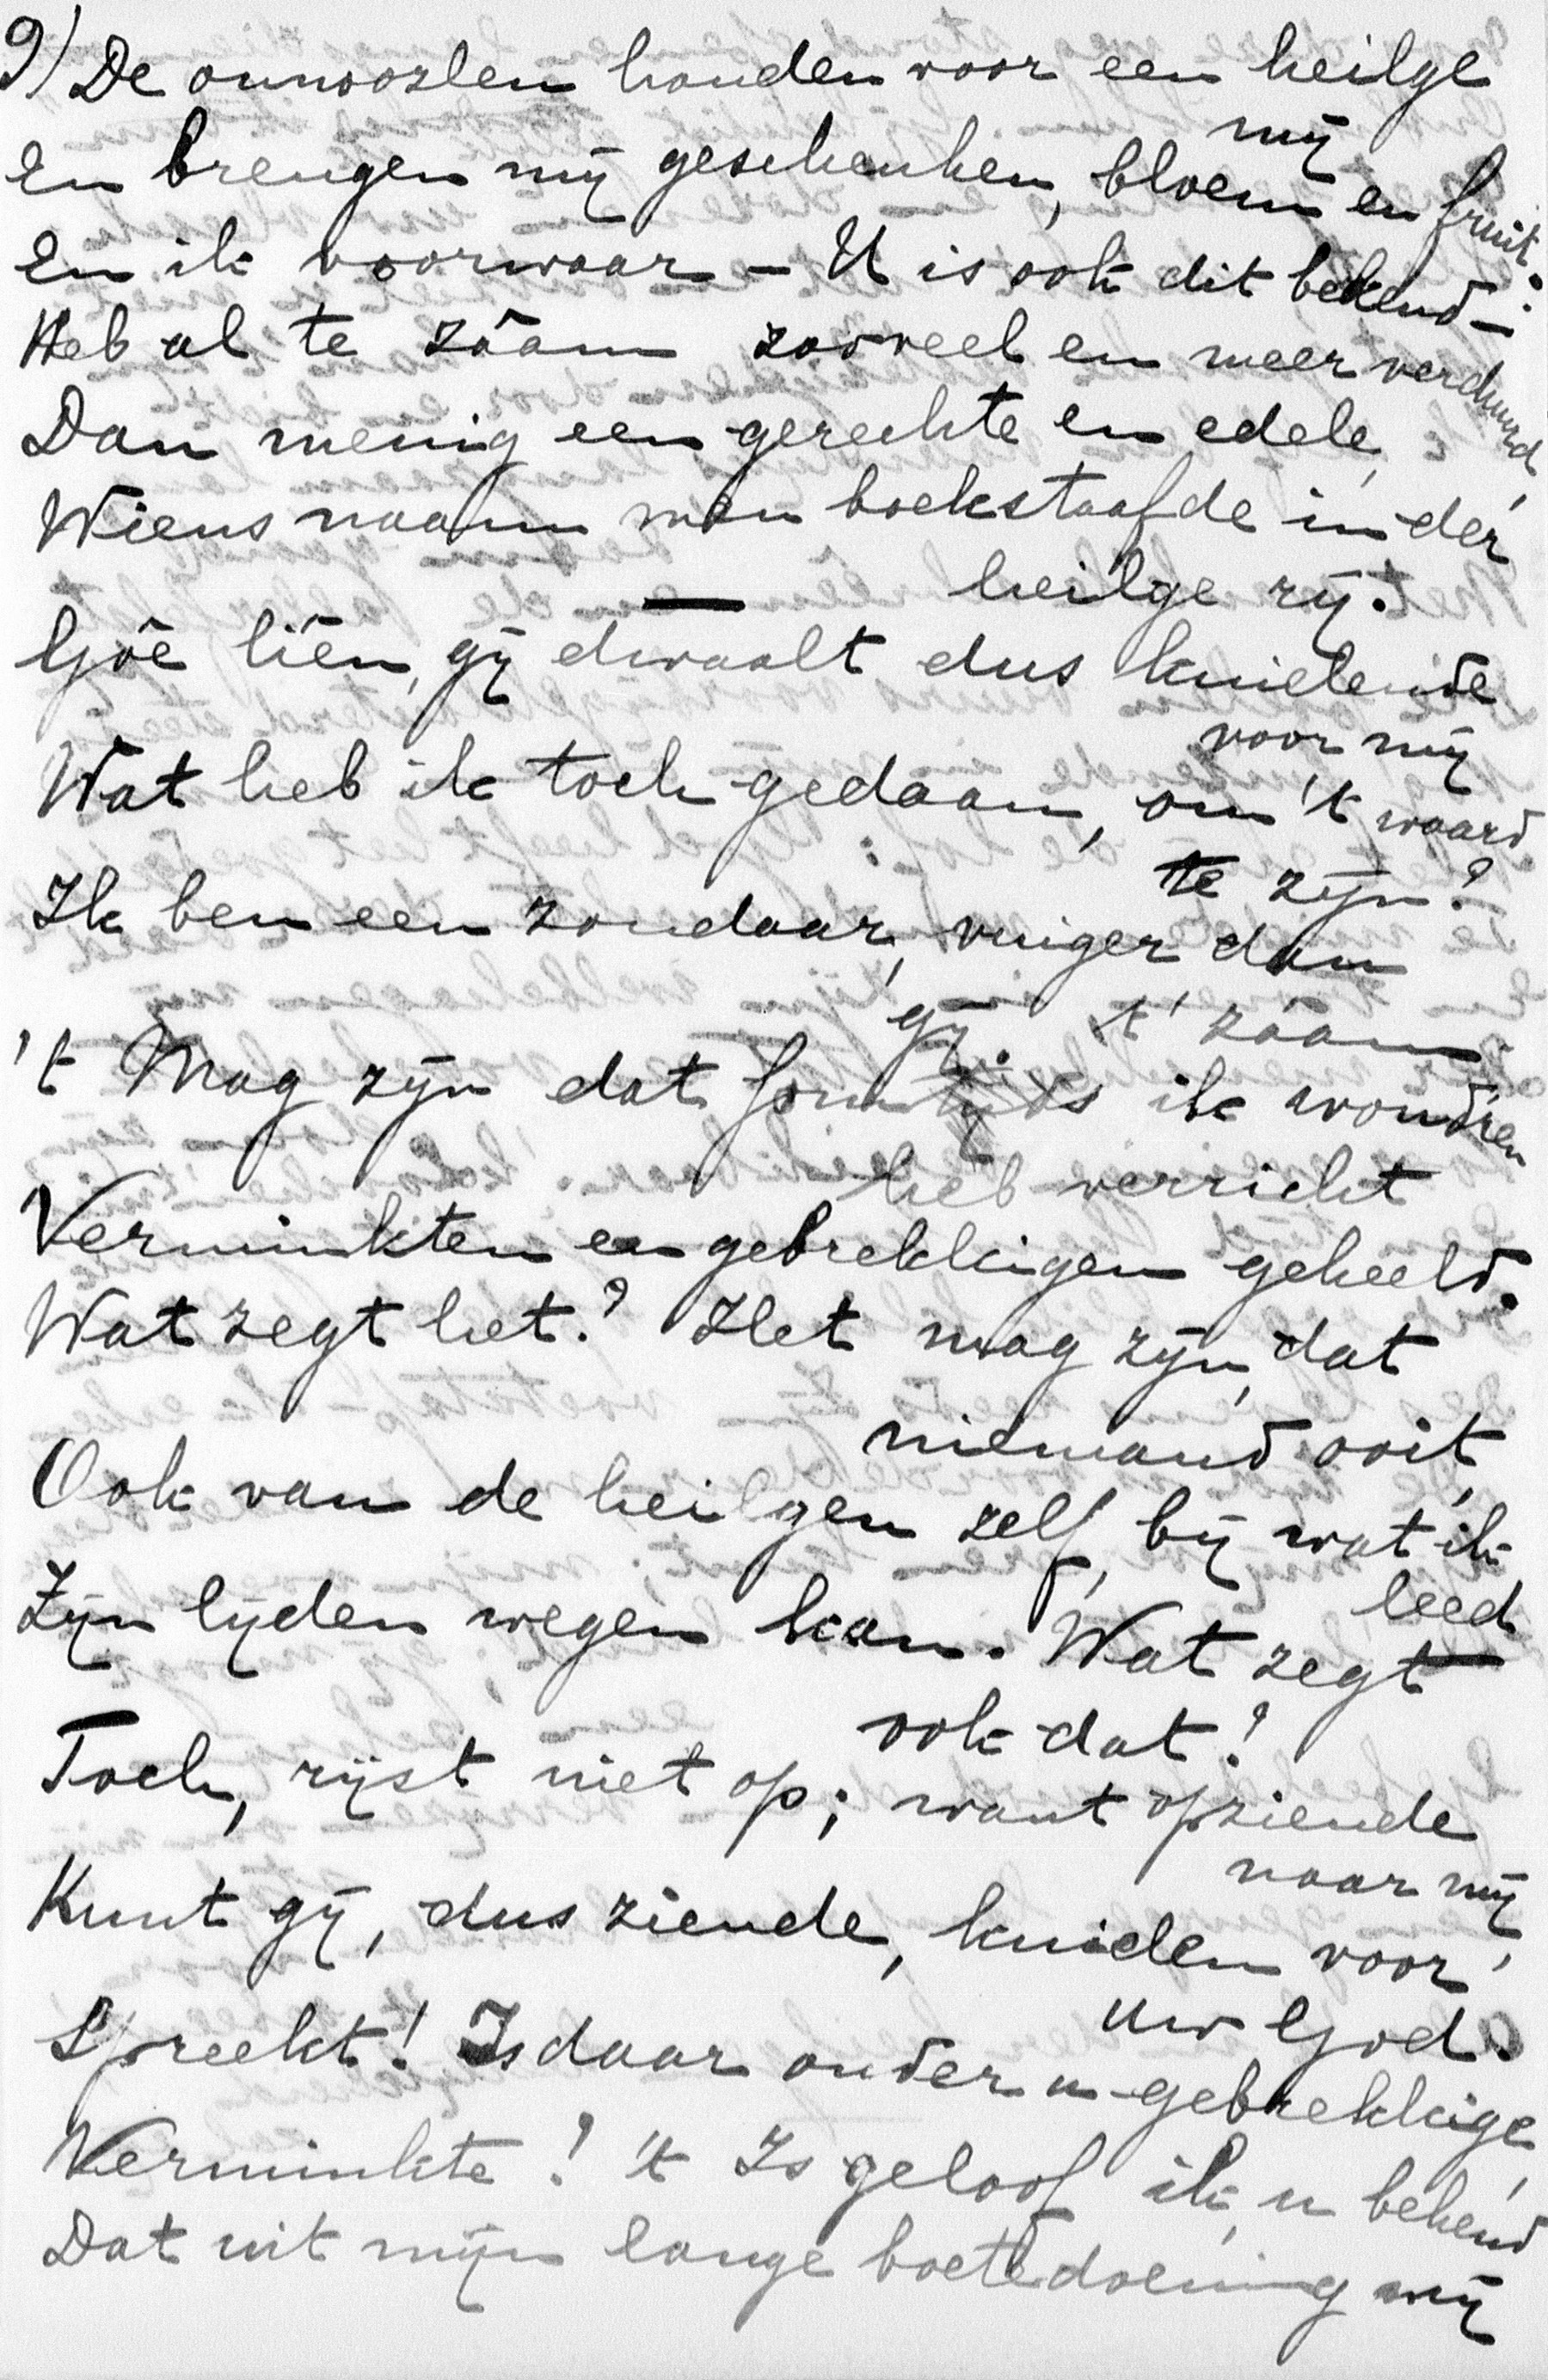 9) De onnoozlen houden voor een heilge
mij
En brengen mij geschenken, bloem en fruit.
En ik voorwaar – U is ook dit bekend –:
Heb al te záàm zooveel en meer verduurd,
Dan menig een gerechte en edele,
Wiens naam men boekstaafde in der
heilge rij.
—
Goê liên, gij dwaalt dus knielende
voor mij
Wat heb ik toch gedaan, om 't waard
te zijn?
Ik ben een zondaar, vuiger dan
gij. t' záàm.
't Mag zijn dat somtijds ik wond'ren
heb verricht
Verminkten en gebrekkigen geheeld.
Wat zegt het? Het mag zijn, dat
niemand ooit,
Ook van de heilgen zelf, bij wat ik
leed
Zijn lijden wegen kan. Wat zegt
ook dat?
Toch, rijst niet op; want opziende
naar mij,
Kunt gij, dus ziende, knielen voor
uw God.
Spreekt! Is daar onder u gebrekkige,
Verminkte? 't Is geloof ik, u bekend
Dat uit mijn lange boetedoening mij